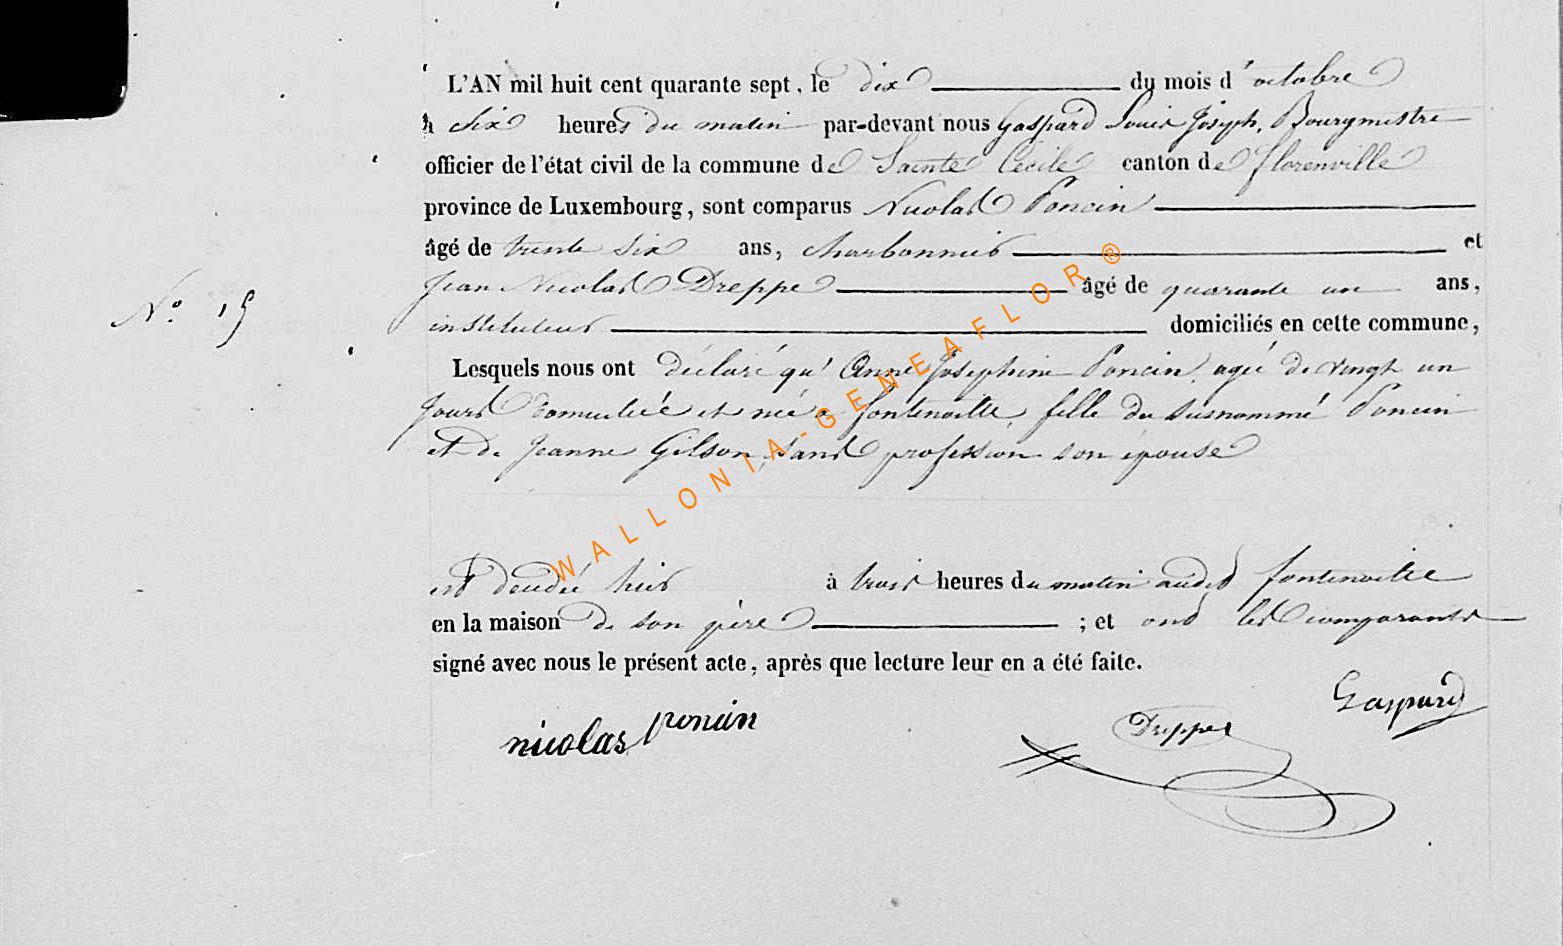 L'AN mil huit cent quarante sept, le dix du mois d'octobre
à six heures du matin par-devant nous Gaspard Louis Joseph, Bourgmestre
officier de l'état civil de la commune de Sainte Cécile canton de florenville
province de Luxembourg, sont comparus Nicolas Poncin
âgé de trente six ans, charbonnier et
Jean Nicolas Dreppe âgé de quarante un ans,
instituteur domiciliés en cette commune,
N° 15
Lesquels nous ont déclaré qu'Anne Josephine Poncin, agée de vingt un
jours domiciliée et née a fontenoille, fille du susnommé Poncin
et de Jeanne Gilson, sans profession son épouse
est décédée hier à trois heures du matin audit fontenoille
en la maison de son père ; et ont les comparants
signé avec nous le présent acte, après que lecture leur en a été faite.
nicolas poncin
Dreppe
Gaspard
WALLONIA-GENEAFLOR®